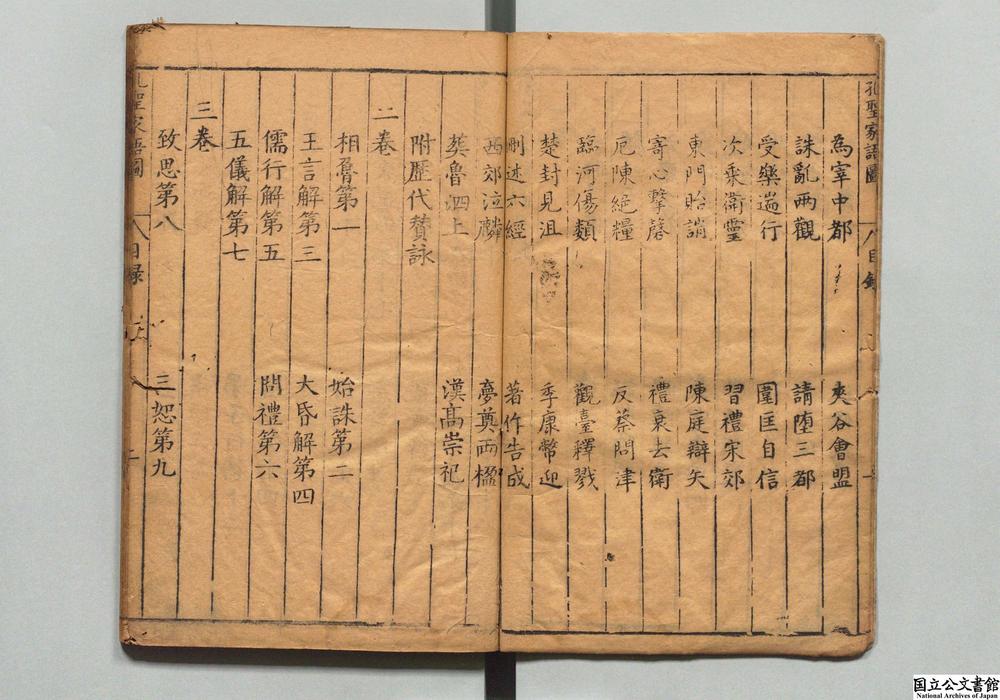 孔聖家語圖 目録
為宰中都 夾谷會盟
誅亂兩觀 請墮三都
受樂遄行 圍匡自信
次乘衛靈 習禮宋郊
東門貽誚 陳庭辯矢
寄心擊磬 禮衰去衛
厄陳絕糧 反蔡問津
臨河傷類 觀臺釋戮
楚封見沮 季康幣迎
刪述六經 著作告成
西郊泣麟 夢奠兩楹
葬魯泗上 漢高崇祀
附歷代贊詠
二卷
相魯第一 始誅第二
王言解第三 大昏解第四
儒行解第五 問禮第六
五儀解第七
三卷
致思第八 三恕第九
孔聖家語圖 目録
国立公文書館
National Archives of Japan